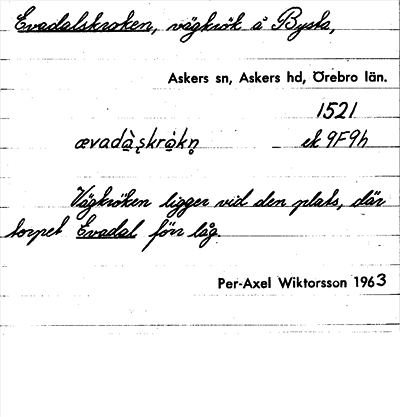 Evadalskroken, vägkrök å Bysta,
Askers sn, Askers hd, Örebro län.
1521
ævadà̱ʂkrå̀kn̥ ek 9F9h
Vägkröken ligger vid den plats, där
torpet Evadal förr låg.
Per-Axel Wiktorsson 1963